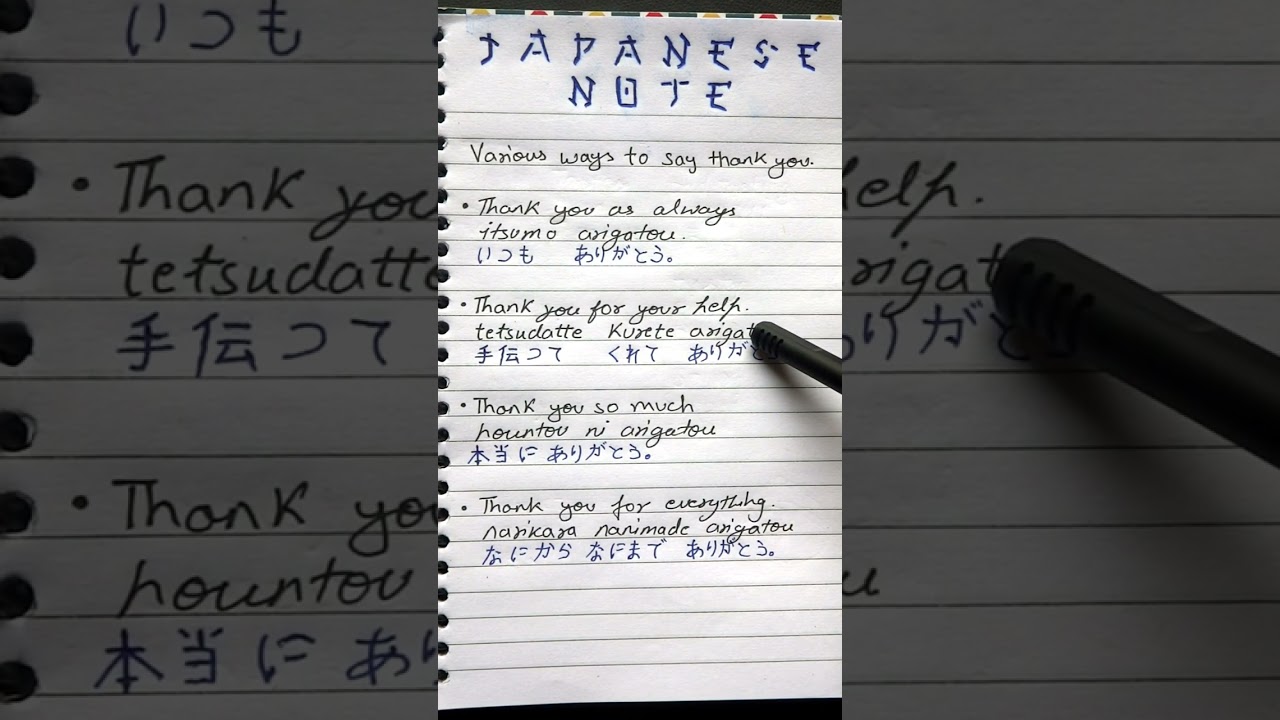 JAPANESE
NOTE
Various ways to say thank you.
• Thank you as always
itsumo arigatou.
いつも ありがとう。
• Thank you for your help.
tetsudatte Kurete arigat
手伝つて くれて ありがとう
• Thank you so much
hountou ni arigatou
本当に ありがとう。
• Thank you for everything.
narikara nanimade arigatou
なにから なにまで ありがとう。